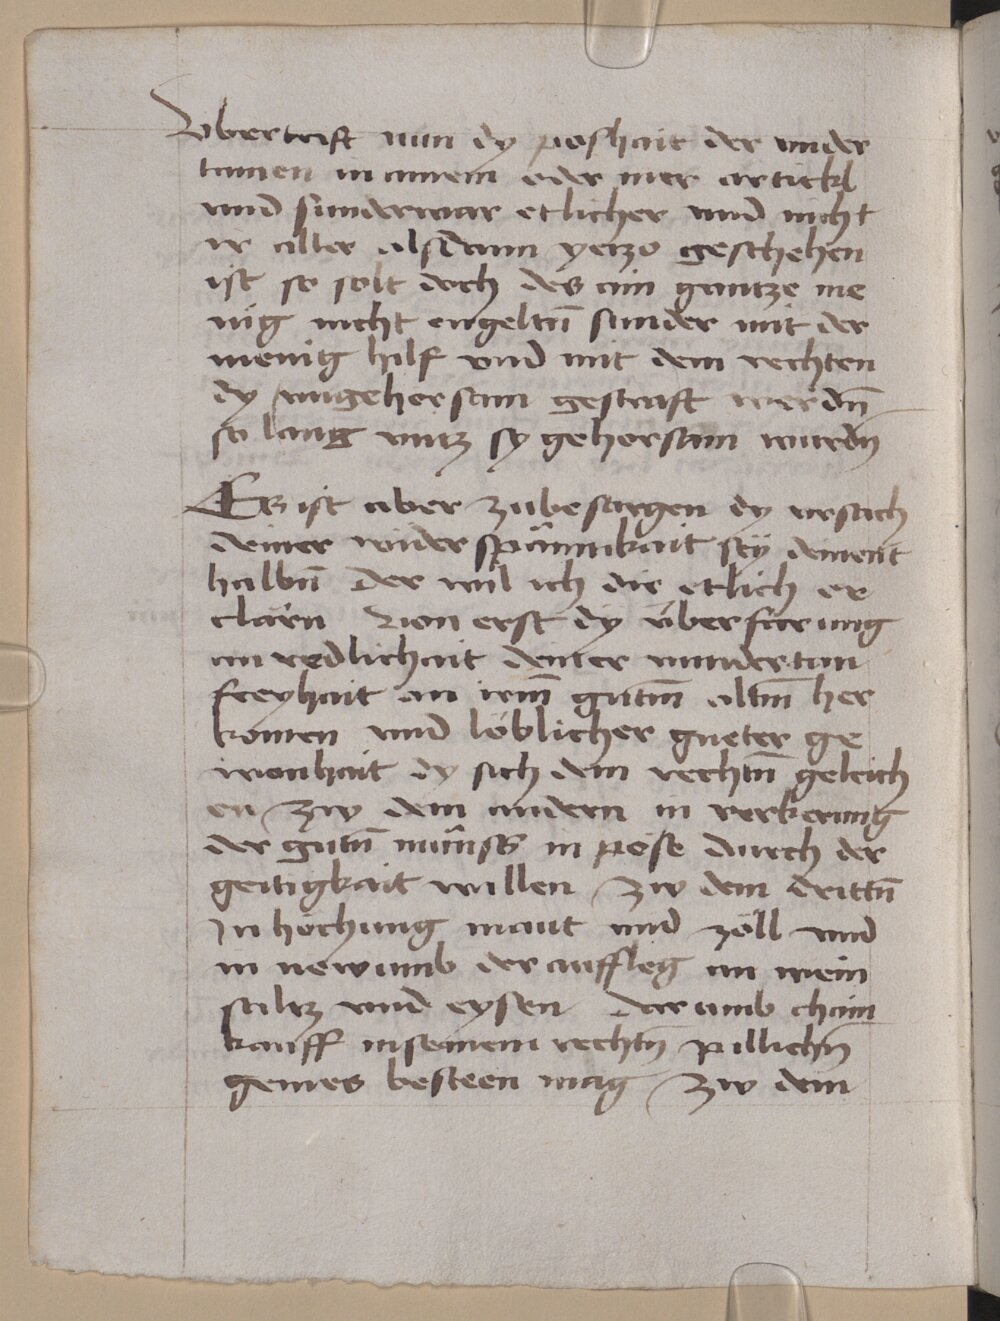 Vbertrift nun dy poshait der under
tanen in ainem oder mer artickl
vnd sunderwar etlicher vnd nicht
ir aller alsdann yetzo geschehen
ist so solt doch des ain gantze me
nig nicht engeltn̄ sunder mit der
menig hilf vnd mit dem rechten
dy vngehorsam gestraft werdn̄
so lang vntz sy gehorsam wurdn̄
Es ist aber zubesorgen dy vrsach
deiner widerspännikait sey deinent
halbn̄ Der wil ich dir etlich er
clärn Von erst dy überfarung
an redlichait deiner vnndertan
freyhait an irm̄ gutm̄ altm̄ her
komen vnd löblicher gueter ge
wonhait dy sich dem rechtn̄ geleich
en Zw dem andern in verkerung
der gutn̄ münss in pöse durch der
geitigkait willen Zw dem drittn̄
In höchung maut vnd zöll vnd
in newumb der auffleg an wein
saltz vnd eysen Darumb chain
kauff in seinem rechtn̄ pillichn̄
gemes besteen mag Zw dem